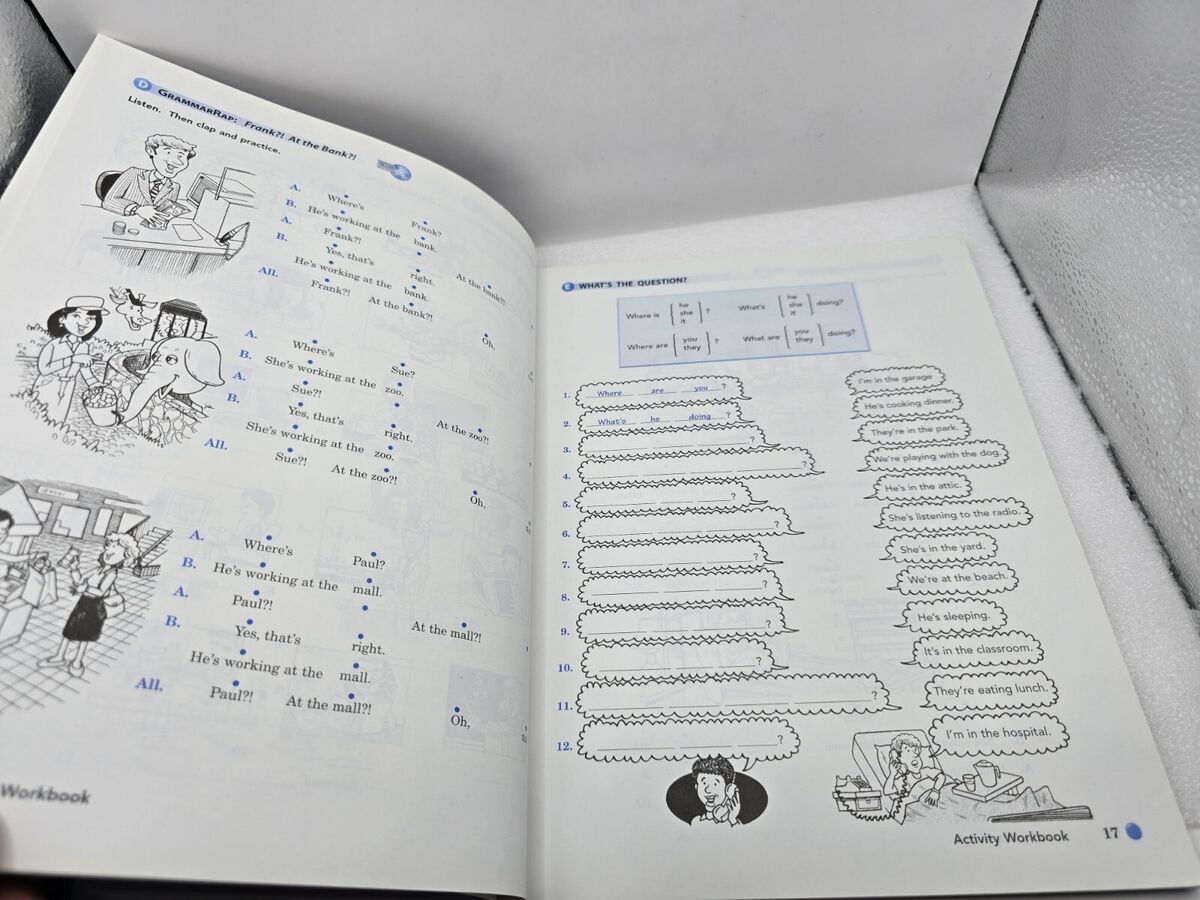 D GRAMMARRAP: Frank?! At the Bank?!
Listen. Then clap and practice.
A. Where's Frank?
B. He's working at the bank.
A. Frank?! At the bank?!
B. Yes, that's right.
He's working at the bank.
All. Frank?! At the bank?! Oh,
A. Where's Sue?
B. She's working at the zoo.
A. Sue?! At the zoo?!
B. Yes, that's right.
She's working at the zoo.
All. Sue?! At the zoo?! Oh,
A. Where's Paul?
B. He's working at the mall.
A. Paul?! At the mall?!
B. Yes, that's right.
He's working at the mall.
All. Paul?! At the mall?! Oh,
Workbook
E WHAT'S THE QUESTION?
Where is he she it ? What's he she it doing?
Where are you they ? What are you they doing?
1. Where are you ? I'm in the garage
2. What's he doing ? He's cooking dinner.
3. ? They're in the park.
4. ? We're playing with the dog.
5. ? He's in the attic.
6. ? She's listening to the radio.
7. ? She's in the yard.
8. ? We're at the beach.
9. ? He's sleeping.
10. ? It's in the classroom.
11. ? They're eating lunch.
12. ? I'm in the hospital.
Activity Workbook 17